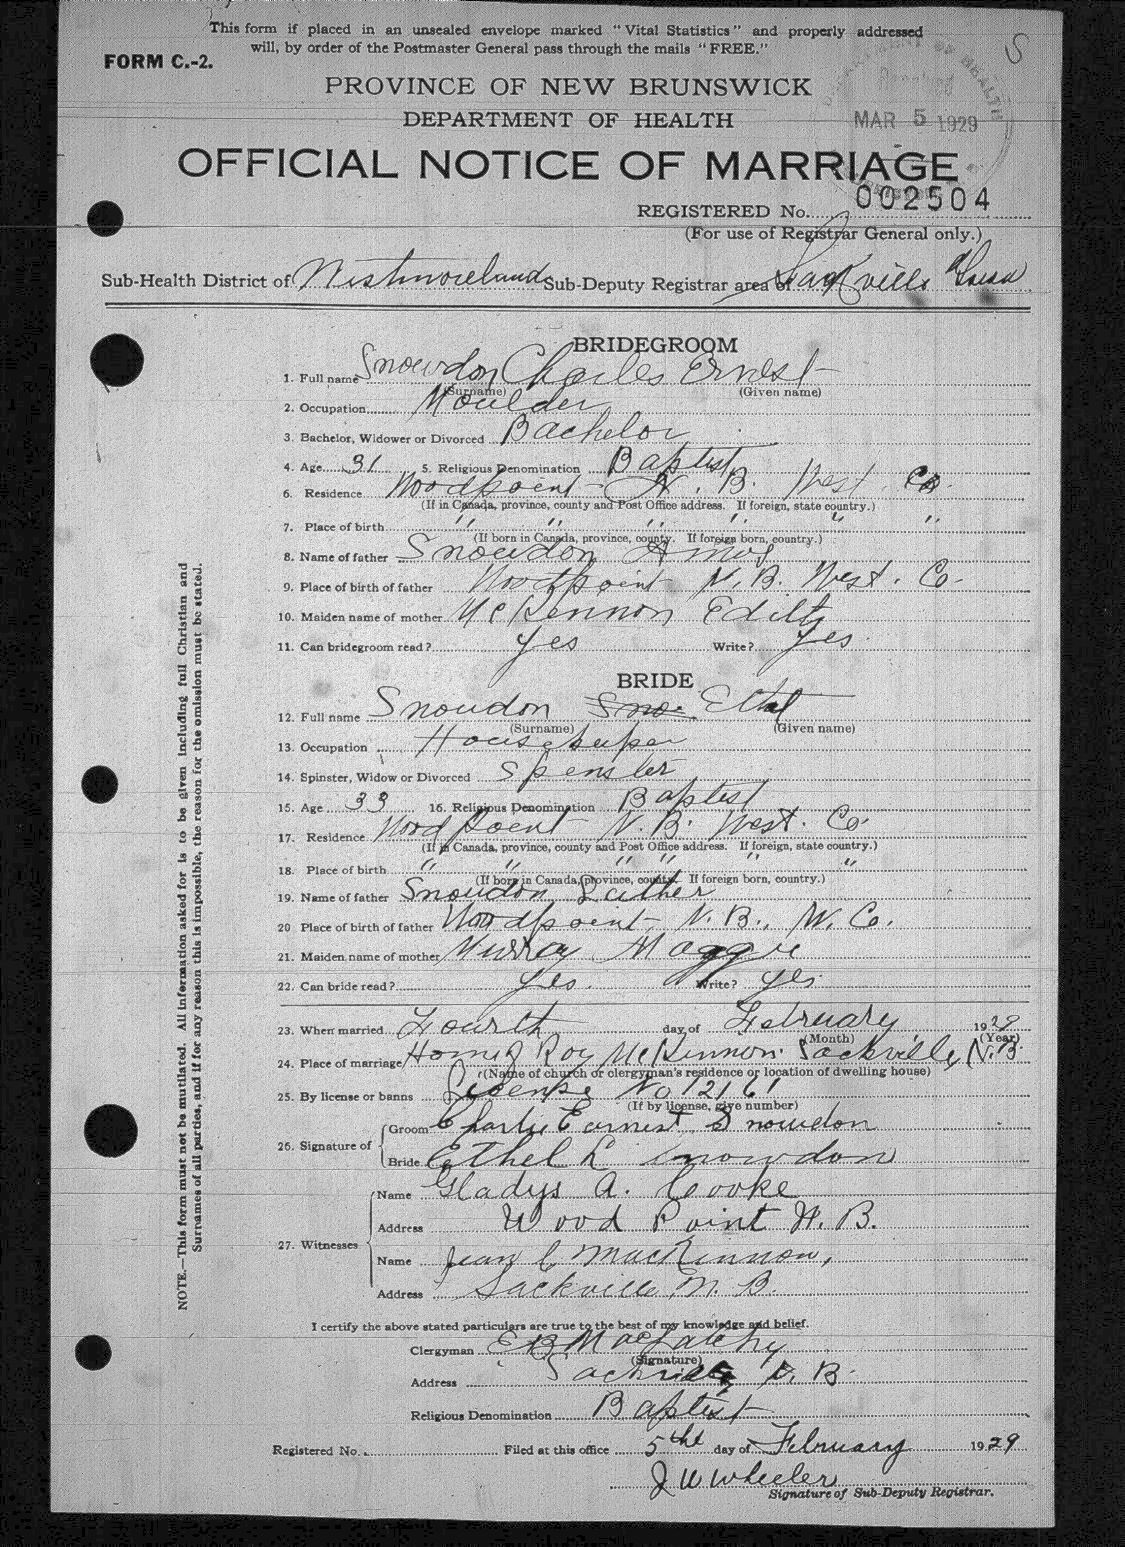 This form if placed in an unsealed envelope marked "Vital Statistics" and properly addressed
will, by order of the Postmaster General pass through the mails "FREE."
FORM C.-2.
S
PROVINCE OF NEW BRUNSWICK
DEPARTMENT OF HEALTH
Received
MAR 5 1929
OFFICIAL NOTICE OF MARRIAGE
REGISTERED No. 002504
(For use of Registrar General only.)
Sub-Health District of Westmoreland Sub-Deputy Registrar area of Sackville
BRIDEGROOM
1. Full name Snowdon Charles Ernest
(Surname) (Given name)
2. Occupation Moulder
3. Bachelor, Widower or Divorced Bachelor
4. Age 31 5. Religious Denomination Baptist
6. Residence Woodpoint - N. B. West. Co.
(If in Canada, province, county and Post Office address. If foreign, state country.)
7. Place of birth " " " " " "
(If born in Canada, province, county. If foreign born, country.)
8. Name of father Snowdon Amos
9. Place of birth of father Woodpoint N. B. West. Co.
10. Maiden name of mother McKennon Edith
11. Can bridegroom read? Yes Write? Yes
BRIDE
12. Full name Snowdon Sno Ethel
(Surname) (Given name)
13. Occupation Housekeeper
14. Spinster, Widow or Divorced Spenster
15. Age 33 16. Religious Denomination Baptist
17. Residence Wood Point N. B. West. Co.
(If in Canada, province, county and Post Office address. If foreign, state country.)
18. Place of birth " " " " " "
(If born in Canada, province, county. If foreign born, country.)
19. Name of father Snowdon Luther
20 Place of birth of father Woodpoint, N. B., W. Co.
21. Maiden name of mother Murray Maggie
22. Can bride read? Yes. Write? Yes
23. When married Fourth day of February 1929
(Month) (Year)
24. Place of marriage Home of Roy McKinnon. Sackville, N.B.
(Name of church or clergyman's residence or location of dwelling house)
25. By license or banns License No 12161
(If by license, give number)
26. Signature of
Groom Charlie Earnest Snowdon
Bride Ethel L Snowdon
27. Witnesses
Name Gladys A. Cooke
Address Wood Point N. B.
Name Jean C MacKinnon,
Address Sackville, N. B.
I certify the above stated particulars are true to the best of my knowledge and belief.
Clergyman E B MacLatchy
(Signature)
Address Sackville N. B.
Religious Denomination Baptist
Registered No. Filed at this office 5th day of February 1929
J W Wheeler
Signature of Sub-Deputy Registrar.
NOTE.—This form must not be mutilated. All information asked for is to be given including full Christian and
Surnames of all parties, and if for any reason this is impossible, the reason for the omission must be stated.